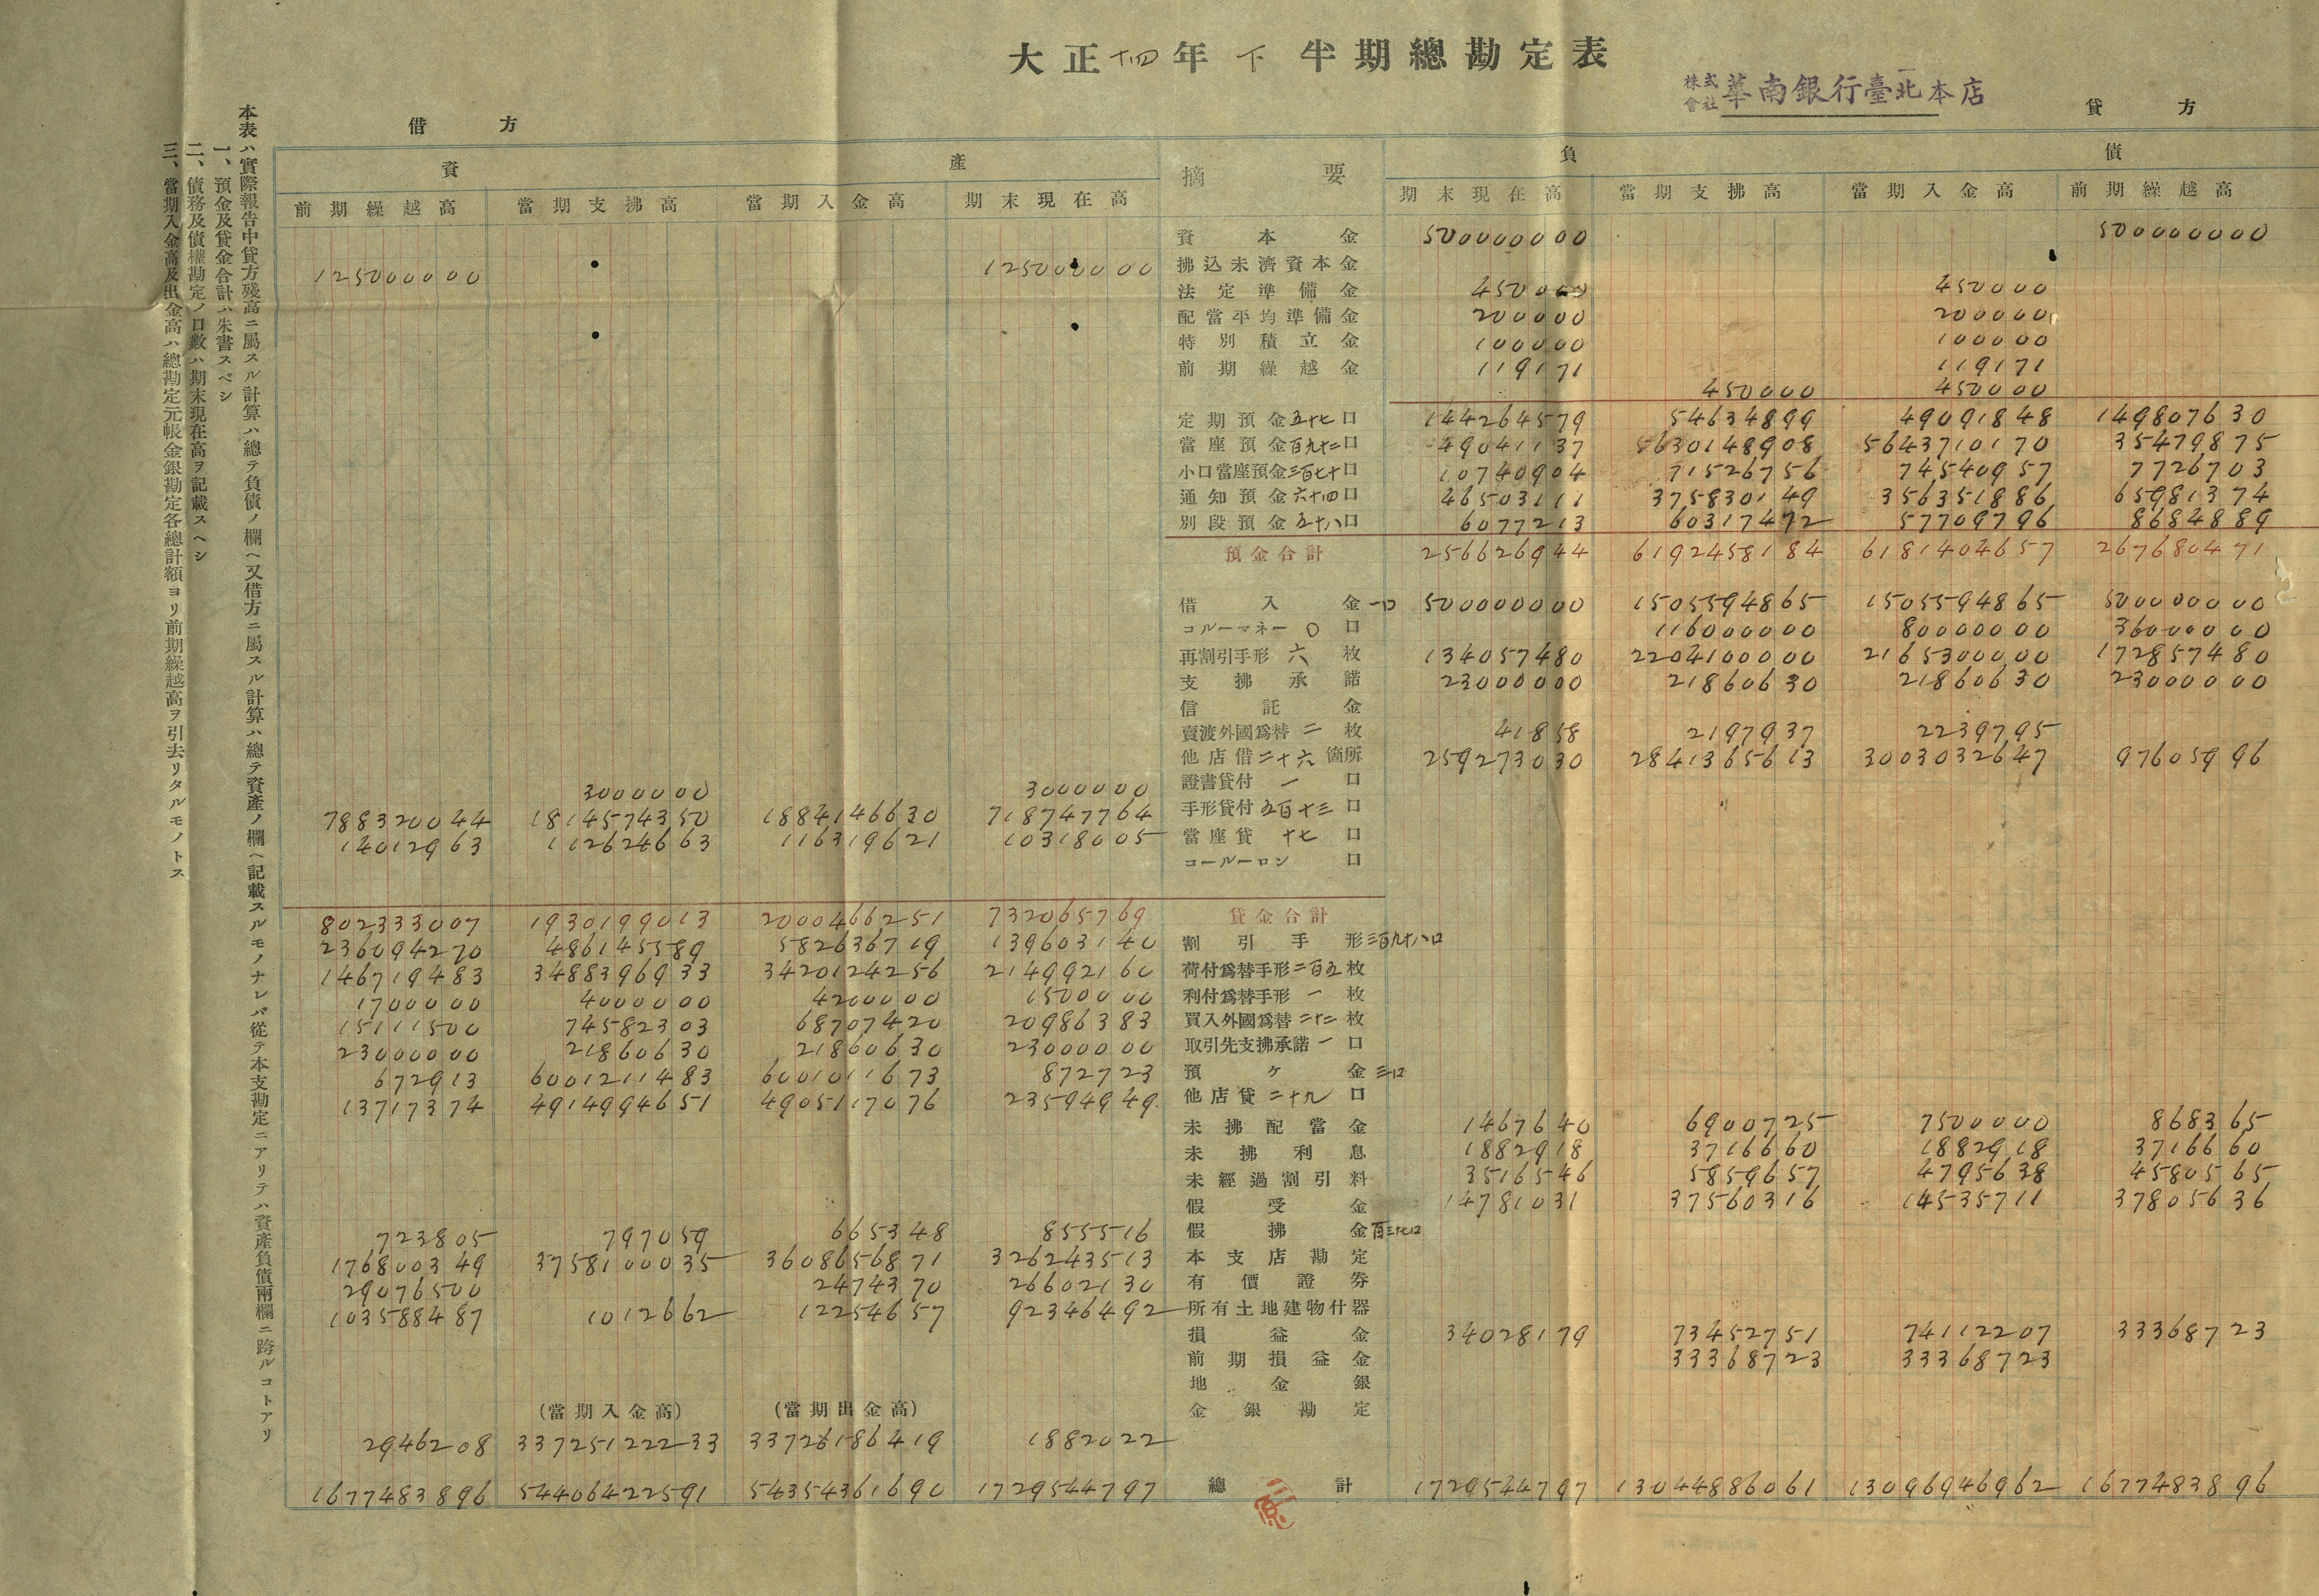 大正十四年下半期總勘定表
株式會社 華南銀行臺北本店
借方 貸方
資產 摘要 負債
前期繰越高 當期支拂高 當期入金高 期末現在高 期末現在高 當期支拂高 當期入金高 前期繰越高
資本金 500000000 500000000
125000000 125000000 拂込未濟資本金
法定準備金 450000 450000
配當平均準備金 200000 200000
特別積立金 100000 100000
前期繰越金 119171 119171
450000 450000
定期預金五十七口 144264579 54634899 49091848 149807630
當座預金百九十二口 49041137 5630148908 5643710170 35479875
小口當座預金三百七十口 10740904 71526756 74540957 7726703
通知預金六十四口 46503111 375830149 356351886 65981374
別段預金五十八口 6077213 60317472 57709796 8684889
預金合計 256626944 6192458184 6181404657 267680471
借入金一口 500000000 1505594865 1505594865 500000000
コルーマネー 0 口 116000000 80000000 36000000
再割引手形 六 枚 134057480 2204100000 2165300000 172857480
支拂承諾 23000000 21860630 21860630 23000000
信託金
賣渡外國爲替 二 枚 41858 2197937 2239795
他店借二十六箇所 259273030 2841365613 3003032647 97605996
3000000 3000000 證書貸付 一 口
788320044 1814574350 1884146630 718747764 手形貸付五百十三口
14012963 112624663 116319621 10318005 當座貸 十七 口
コールーロン 口
802333007 1930199013 2000466251 732065769 貸金合計
236094270 486145589 582636719 139603140 割引手形三百九十八口
146719483 3488396933 3420124256 214992160 荷付爲替手形二百五枚
1700000 4000000 4200000 1500000 利付爲替手形 一 枚
15111500 74582303 68707420 20986383 買入外國爲替二十二枚
23000000 21860630 21860630 23000000 取引先支拂承諾一口
672913 6001211483 6001011673 872723 預ケ金三口
13717374 4914994651 4905117076 23594949 他店貸二十九口
未拂配當金 1467640 6900725 7500000 868365
未拂利息 1882918 3716660 1882918 3716660
未經過割引料 3516546 5859657 4795638 4580565
假受金 14781031 37560316 14535711 37805636
723805 797059 665348 855516 假拂金百三十七口
176800349 3758100035 3608656871 326243513 本支店勘定
29076500 2474370 26602130 有價證券
103588487 1012662 12254657 92346492 所有土地建物什器
損益金 34028179 73452751 74112207 33368723
前期損益金 33368723 33368723
地金銀
(當期入金高) (當期出金高) 金銀勘定
2946208 33725122233 33726186419 1882022
1677483896 54406422591 54354361690 1729544797 總計 1729544797 13044886061 13096946962 1677483896
三原
本表ハ實際報告中貸方殘高ニ屬スル計算ハ總テ負債ノ欄ヘ又借方ニ屬スル計算ハ總テ資產ノ欄ヘ記載スルモノナレバ從テ本支勘定ニアリテハ資產負債兩欄ニ跨ルコトアリ
一、預金及貸金合計ハ朱書スベシ
二、債務及債權勘定ノ口數ハ期末現在高ヲ記載スヘシ
三、當期入金高及出金高ハ總勘定元帳金銀勘定各總計額ヨリ前期繰越高ヲ引去リタルモノトス